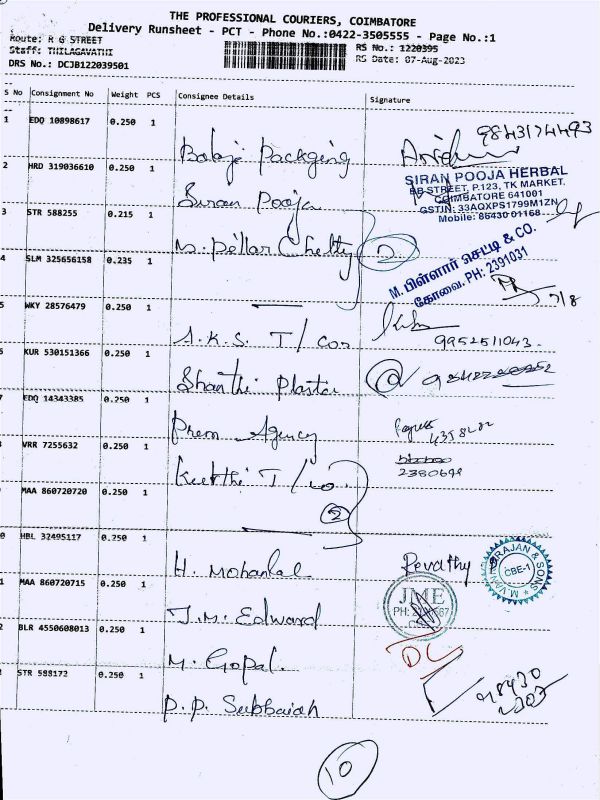 THE PROFESSIONAL COURIERS, COIMBATORE
Delivery Runsheet - PCT - Phone No.:0422-3505555 - Page No.:1
Route: R G STREET
RS No.: 1220395
Staff: THILAGAVATHI
RS Date: 07-Aug-2023
DRS No.: DCJB122039501
S No Consignment No Weight PCS Consignee Details Signature
1 EDQ 10898617 0.250 1 Balaji Packging 9843174493
2 HRD 319036610 0.250 1 Siran Pooja
SIRAN POOJA HERBAL
BB STREET, P.123, TK MARKET,
COIMBATORE 641001
GSTIN: 33AQXPS1799M1ZN
Mobile: 86430 01168
3 STR 588255 0.215 1 M. Pillar Chetty 2
M. பிள்ளார் செட்டி & CO.
கோவை. PH: 2391031
4 SLM 325656158 0.235 1 7/8
5 WKY 28576479 0.250 1 A.K.S. T/Cos 9952511043
KUR 530151366 0.250 1 Shanthi Plastic
EDQ 14343385 0.250 1 Prem Agency
VRR 7255632 0.250 1 Keerthi T/Co. 2380698
MAA 860720720 0.250 1 2
0 HBL 32495117 0.250 1 H. Mohanlal Revathy
& SONS
CBE-1
1 MAA 860720715 0.250 1 J.M. Edward
JME
2 BLR 4550608013 0.250 1 M. Gopal. DC
STR 588172 0.250 1 P.P. Subbaiah
10